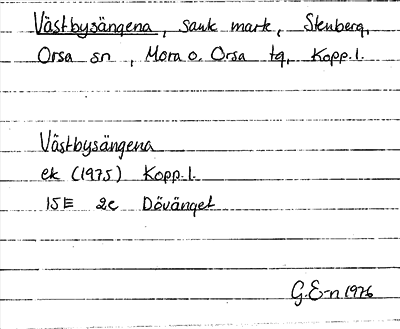 Västbysängena, sank mark, Stenberg,
Orsa sn, Mora o. Orsa tg, Kopp.l.
Västbysängena
ek (1975) Kopp.l.
15E 2c Dövänget
G.E-n 1976